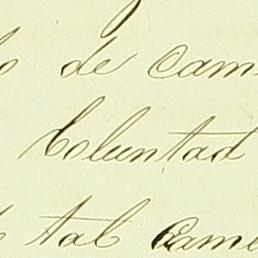 de cam
Voluntad
tal came